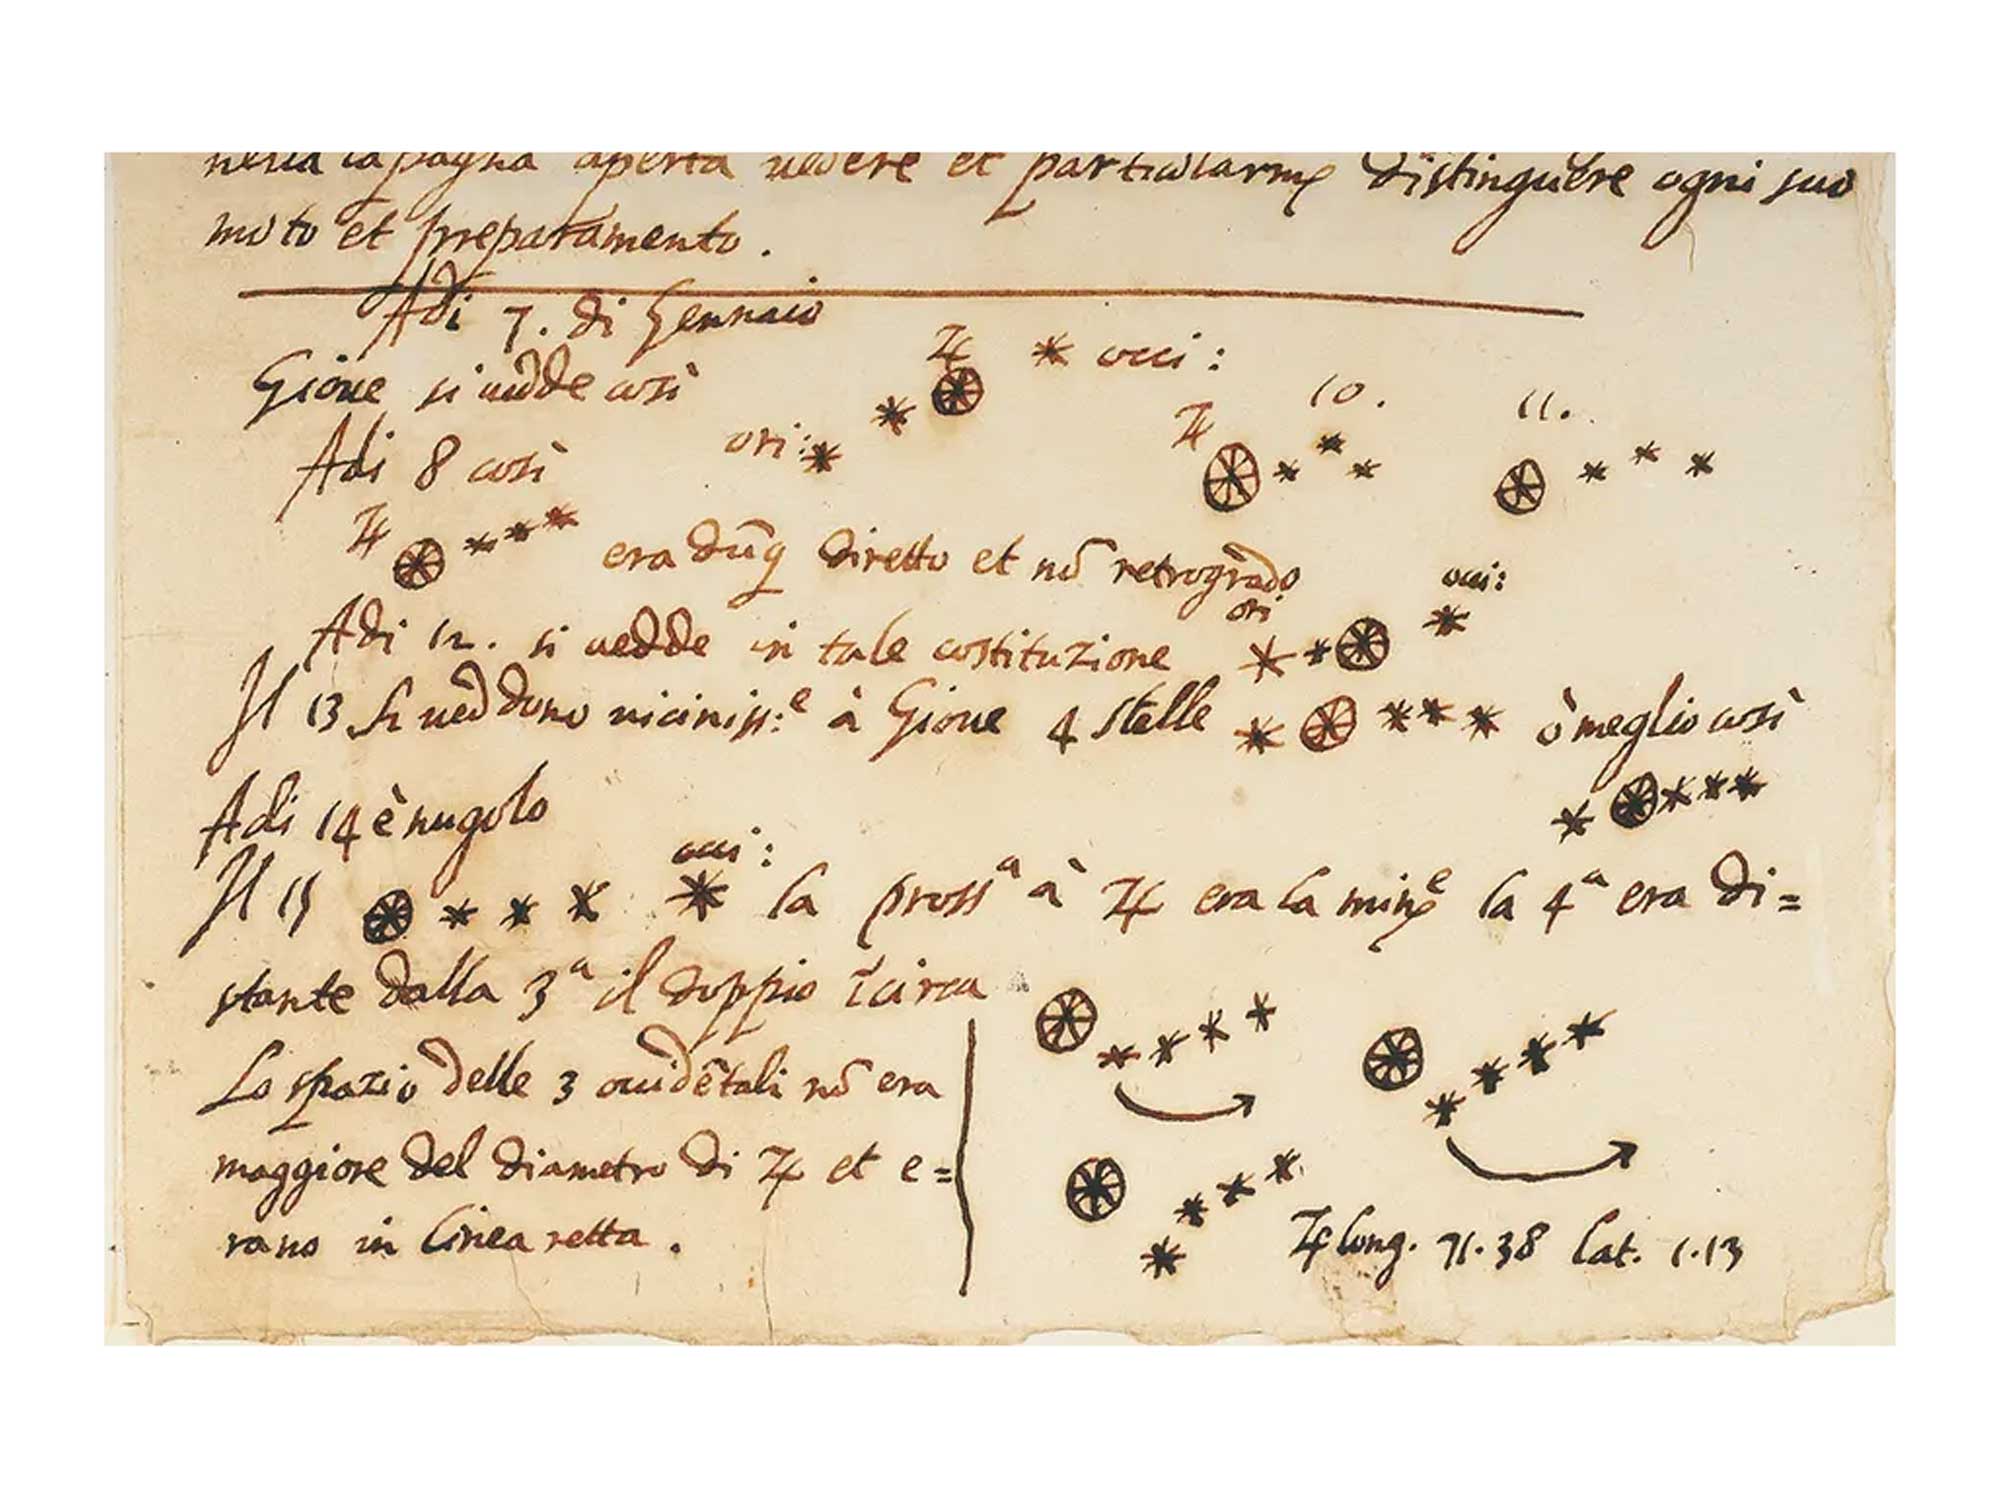 nella capagna aperta vedere et particularme distinguere ogni suo
moto et preparamento.
Adi 7. di Gennaio
Gione si vedde così
♃ * occi:
ori: *
Adi 8 così
♃ 10.
11.
♃
era dūq diretto et nō retrogrado
Adi 12. si vedde in tale costituzione
ori
occi:
Il 13 si veddono viciniss:e à Giove 4 stelle
ò meglio così
Adi 14 è nugolo
Il 15
occi:
la prossa à ♃ era la mine la 4a era di=
stante dalla 3a il doppio īcirca
Lo spazio delle 3 occidētali nō era
maggiore del diametro di ♃ et e=
rano in linea retta.
♃ long. 71.38 lat. 1.13